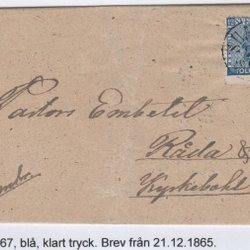 TOLF
Pastors Embetet
Råda &
Kyrkebohl
67, blå, klart tryck. Brev från 21.12.1865.